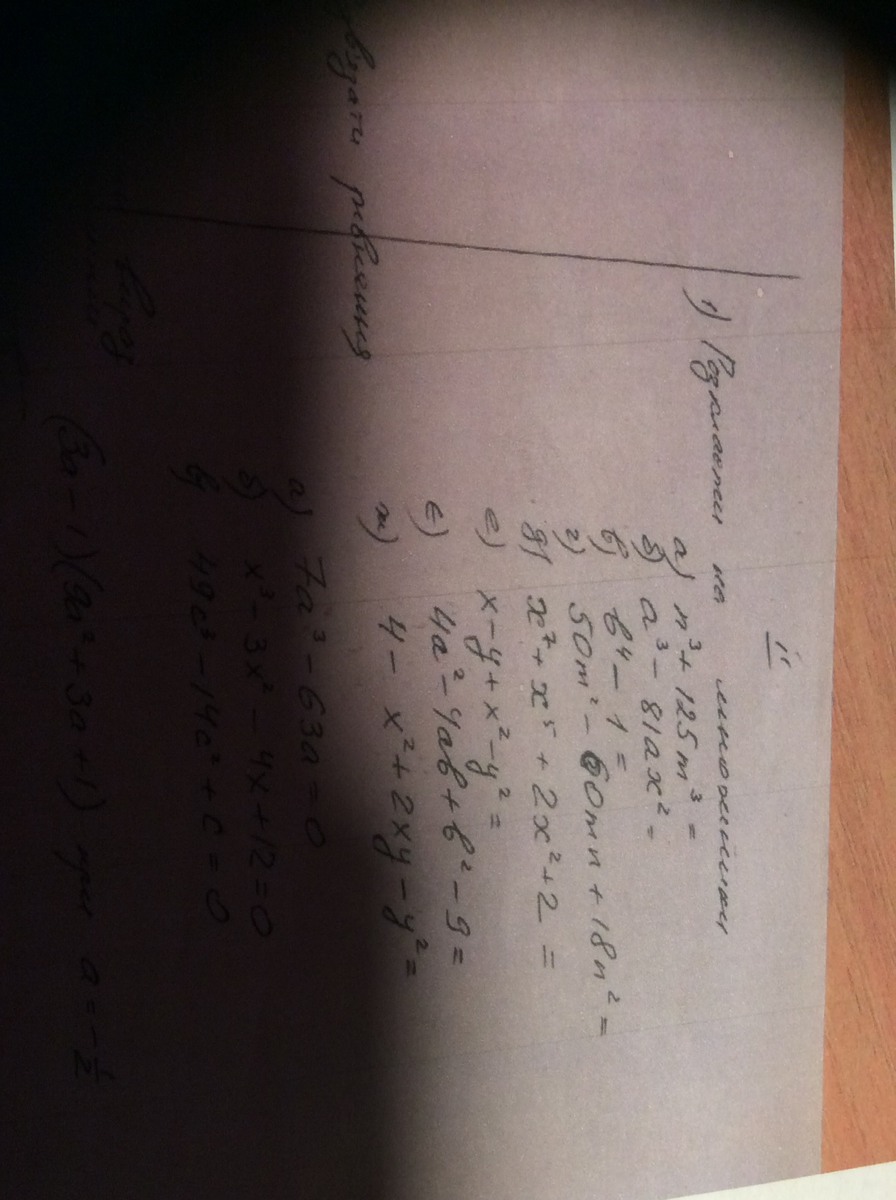 II
1) Розкласти на множники
а) n³ + 125m³ =
б) a³ - 81ax² =
в) b⁴ - 1 =
г) 50m² - 60mn + 18n² =
д) x⁷ + x⁵ + 2x² + 2 =
е) x - y + x² - y² =
є) 4a² - 4ab + b² - 9 =
ж) 4 - x² + 2xy - y² =
рівняння
а) 7a³ - 63a = 0
б) x³ - 3x² - 4x + 12 = 0
в) 49c³ - 14c² + c = 0
вираз
(3a - 1)(9a² + 3a + 1) при a = -1/2